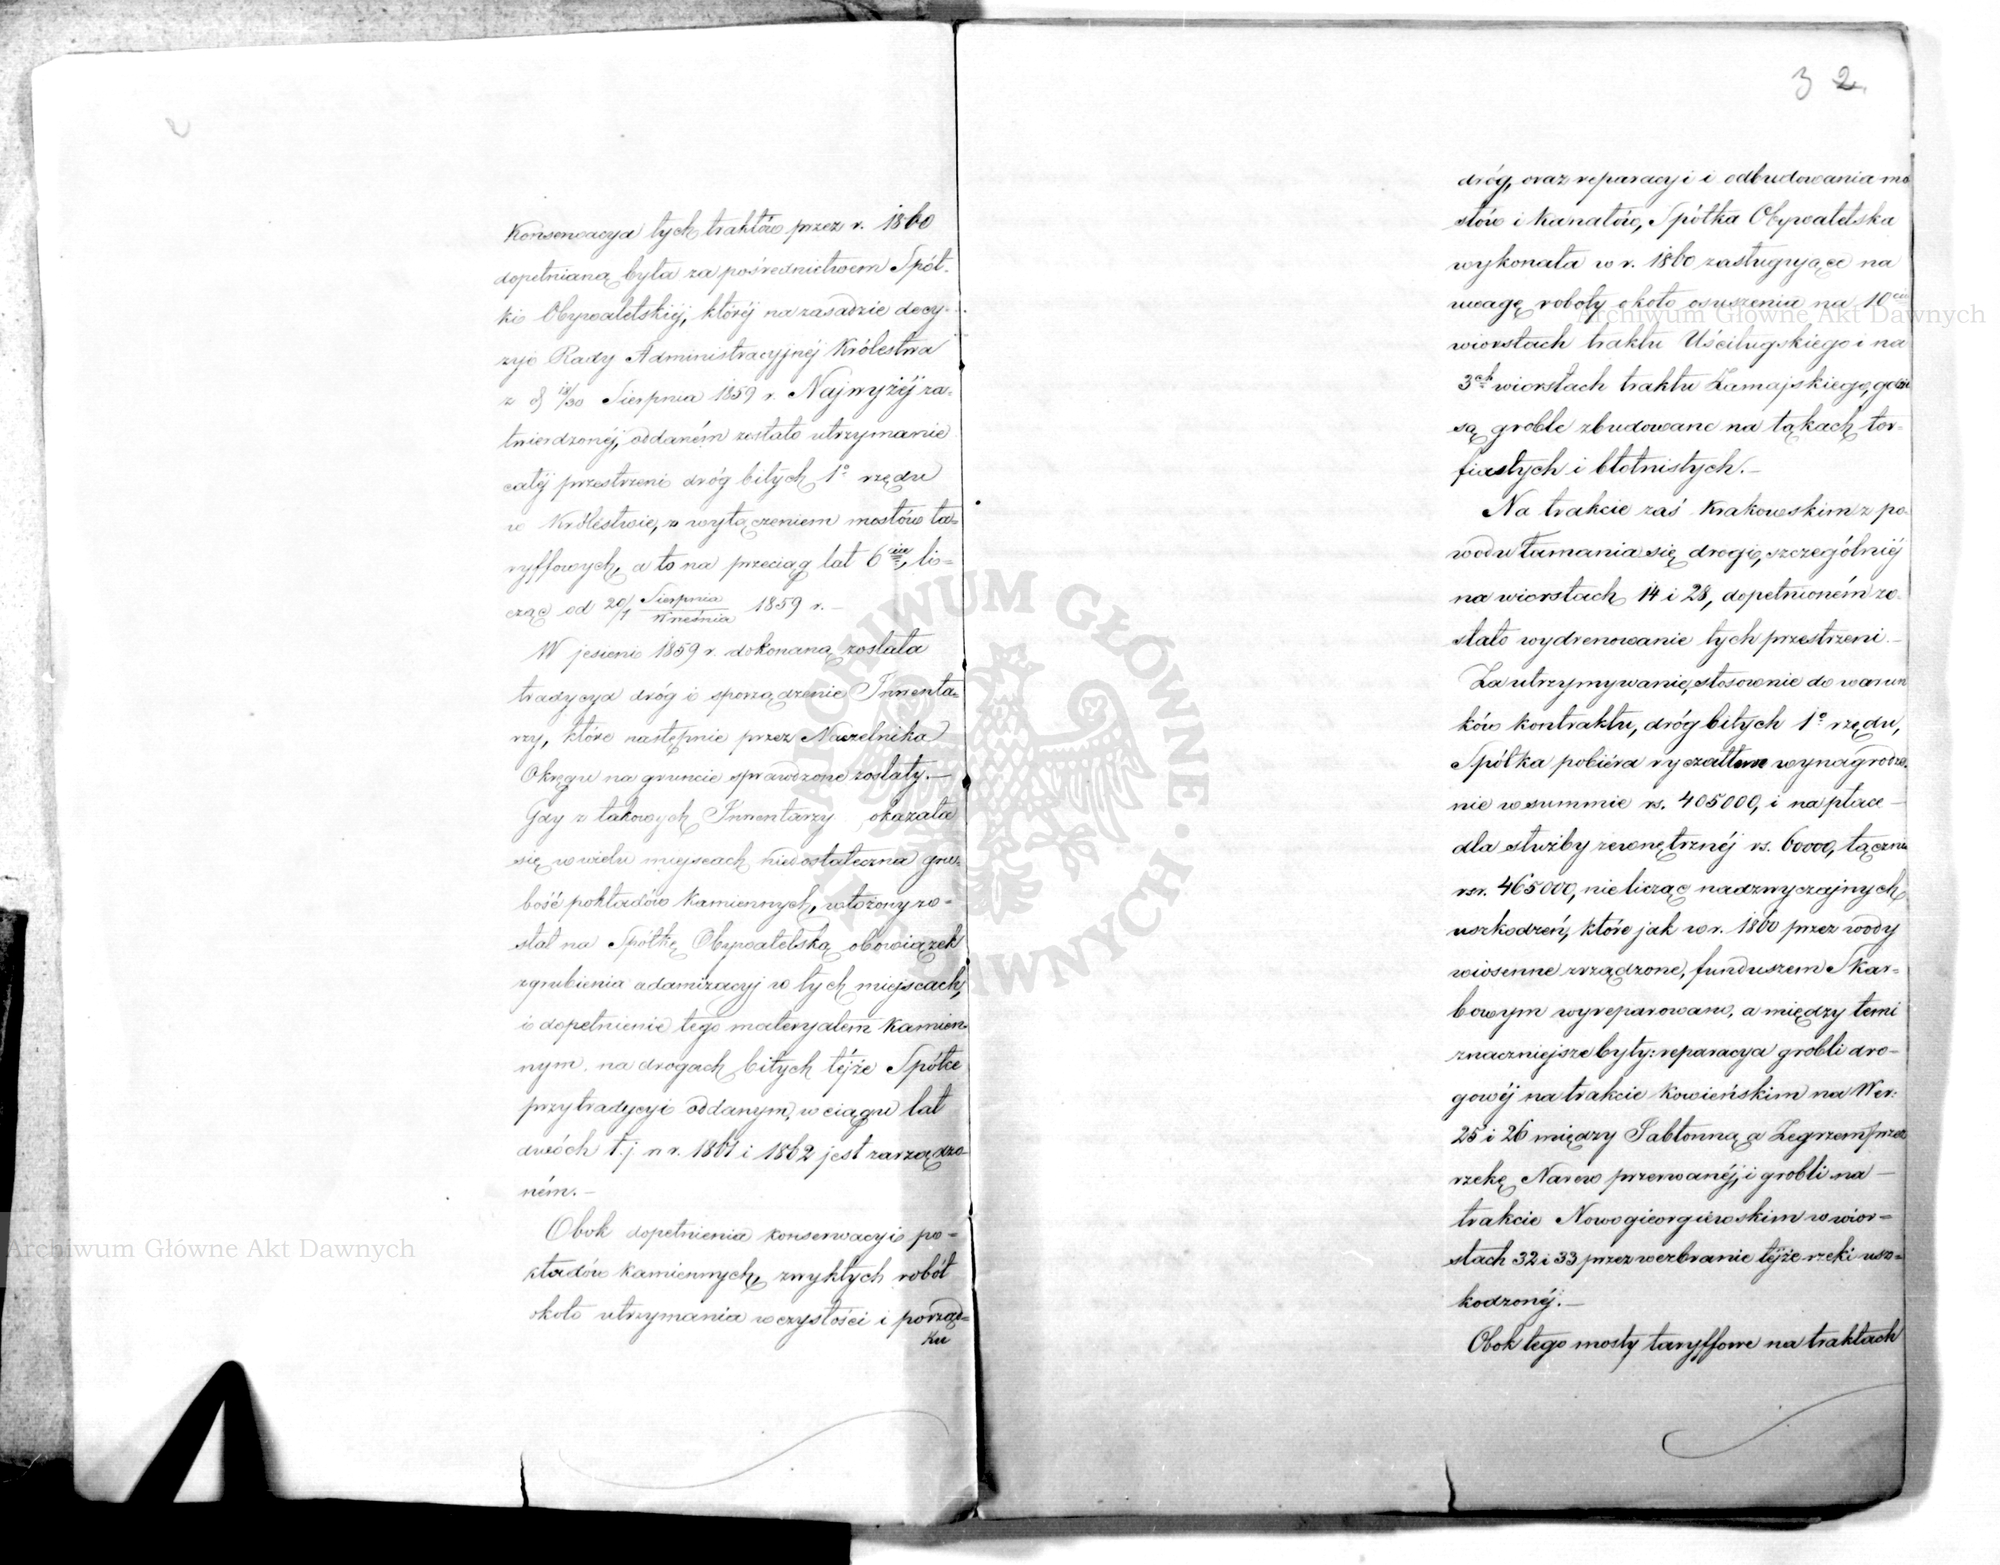 Konserwacya tych traktów przez r. 1860
dopełnianą była za pośrednictwem Spół-
ki Obywatelskiéj, któréj na zasadzie decy-
zyi Rady Administracyjnéj Królestwa
z d 18/30 Sierpnia 1859 r. Najwyżéj za-
twierdzonéj, oddaném zostało utrzymanie
całéj przestrzeni dróg bitych 1º rzędu
w Królestwie, z wyłączeniem mostów ta-
ryffowych, a to na przeciąg lat 6ciu, li-
cząc od 20/1 Sierpnia/Września 1859 r. —
W jesieni 1859 r. dokonaną została
tradycya dróg i sporządzenie Inwenta-
rzy, które następnie przez Naczelnika
Okręgu na gruncie sprawdzone zostały. —
Gdy z takowych Inwentarzy okazała
się w wielu miejscach niedostateczna gru-
bość pokładów kamiennych, włożony zo-
stał na Spółkę Obywatelską obowiązek
zgrubienia adamizacyj w tych miejscach,
i dopełnienie tego materyałem kamien-
nym, na drogach bitych téjże Spółce
przy tradycyi oddanym, w ciągu lat
dwóch t. j w r. 1861 i 1862 jest zarządzo-
ném. —
Obok dopełnienia konserwacyi po-
kładów kamiennych, zwykłych robót
około utrzymania w czystości i porząd-
ku
3 2
dróg, oraz reparacyi i odbudowania mo
stów i kanałów, Spółka Obywatelska
wykonała w r. 1860 zasługujące na
uwagę roboty około osuszenia na 10ciu
wiorstach traktu Uściługskiego i na
3ch wiorstach traktu Zamajskiego, gdzie
są groble zbudowane na łąkach tor-
fiastych i błotnistych. —
Na trakcie zaś Krakowskim z po-
wodu łamania się drogi, szczególniéj
na wiorstach 14 i 28, dopełnioném zo-
stało wydrenowanie tych przestrzeni. —
Za utrzymywanie, stosownie do warun
ków kontraktu, dróg bitych 1º rzędu,
Spółka pobiéra ryczałtem wynagrodze-
nie w summie rs. 405000, i na płace —
dla służby zewnętrznéj rs. 60000, łącznie
rsr. 465000, nie licząc nadzwyczajnych
uszkodzeń, które jak w r. 1860 przez wody
wiosenne zrządzone, funduszem Skar-
bowym wyreparowano, a między temi
znaczniejsze były: reparacya grobli dro-
gowéj na trakcie Kowieńskim na Wer:
25 i 26 między Jabłonną a Zegrzem przez
rzekę Narew przerwanéj, i grobli na —
trakcie Nowogieorgiewskim w wior-
stach 32 i 33 przez wezbranie téjże rzeki usz-
kodzonéj. —
Obok tego mosty taryffowe na traktach
Archiwum Główne Akt Dawnych
Archiwum Główne Akt Dawnych
ARCHIWUM GŁÓWNE AKT DAWNYCH